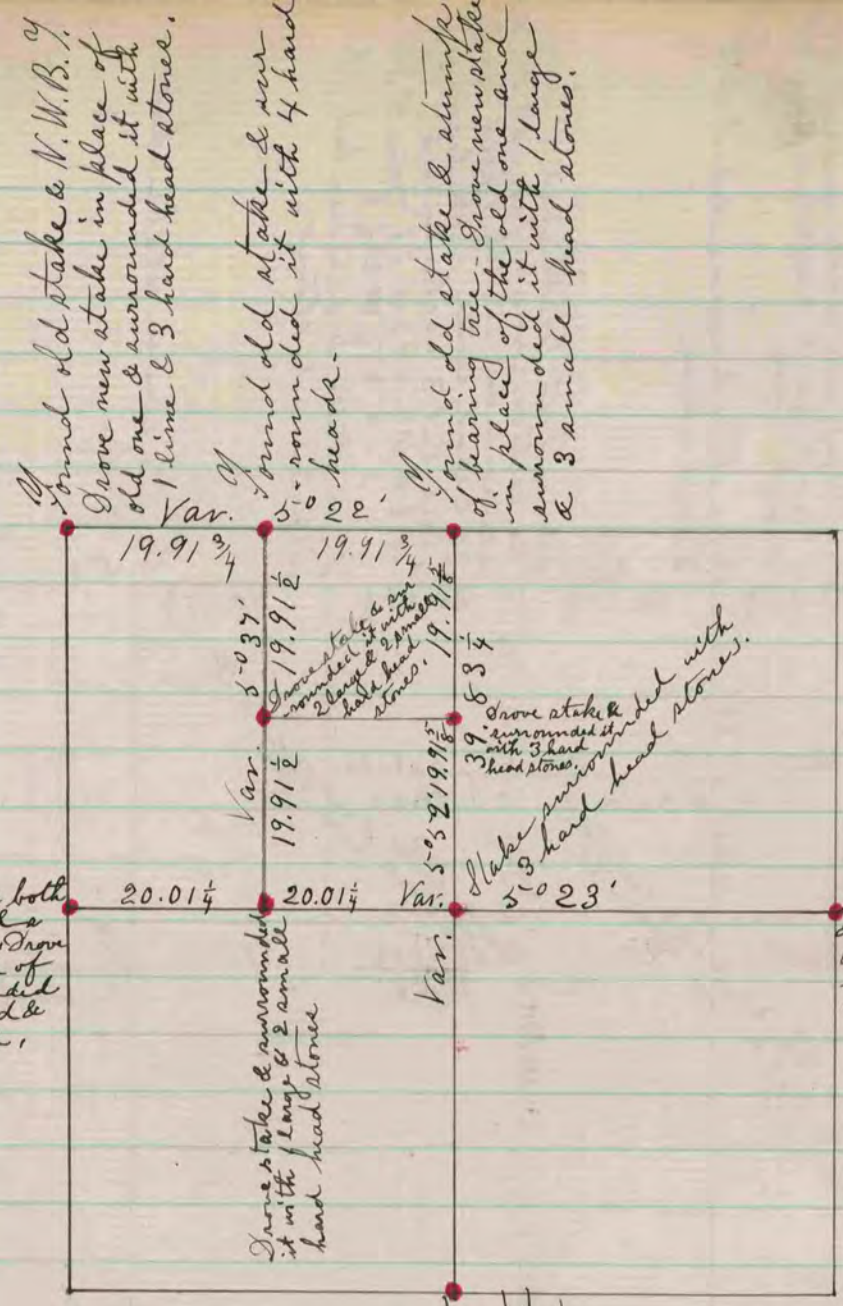 Found old stake & N.W.B.T.
Drove new stake in place of
old one & surrounded it with
1 lime & 3 hard head stones.
Found old stake & sur
-rounded it with 4 hard
heads-
Found old stake & stump
of bearing tree - Drove new stake
in place of the old one and
surrounded it with 1 large
& 3 small head stones.
Var.
5° 22'
19.91 3/4
19.91 3/4
Var. 5° 37'
19.91 1/2
19.91 1/2
Drove stake & sur
-rounded it with
2 large & 2 small
hard head
stones.
Var. 5° 52'
19.91 5/8
19.91 5/8
39.83 1/4
Drove stake &
surrounded it
with 3 hard
head stones.
Stake surrounded with
3 hard head stones.
20.01 1/4
20.01 1/4
Var.
5° 23'
both
Drove
of
&
Drove stake & surrounded
it with 1 large & 2 small
hard head stones